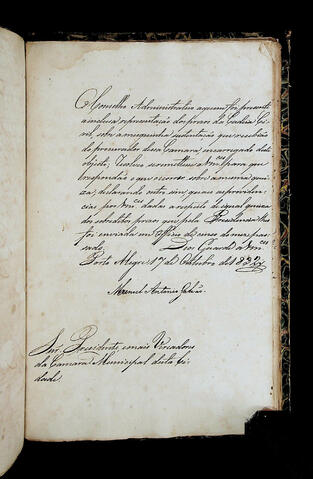 O Conselho Administrativo a quem foi presente
a inclusa representação dos prezos da Cadea Ci-
vil sobre a mesquinha sustentação que recebião
do procurador dessa Camara, encarregado deste
objecto, Resolveo remettella a Vm.ces para que
respondão o que ocorrer sobre a mesma quei-
xa, declarando outro sim, quaes as providen-
cias por Vm.ces dadas a respeito de igual queixa
dos sobreditos prezos que pela Presidencia lhes
foi enviada em Officio de cinco do mez pas-
sado. Deos Guarde a Vm.ces
Porto Alegre 17 de Outubro de 1832
Manoel Antonio Galvão
Snr.s Presidente, e mais Vereadores
da Camara Municipal desta Ci-
dade.